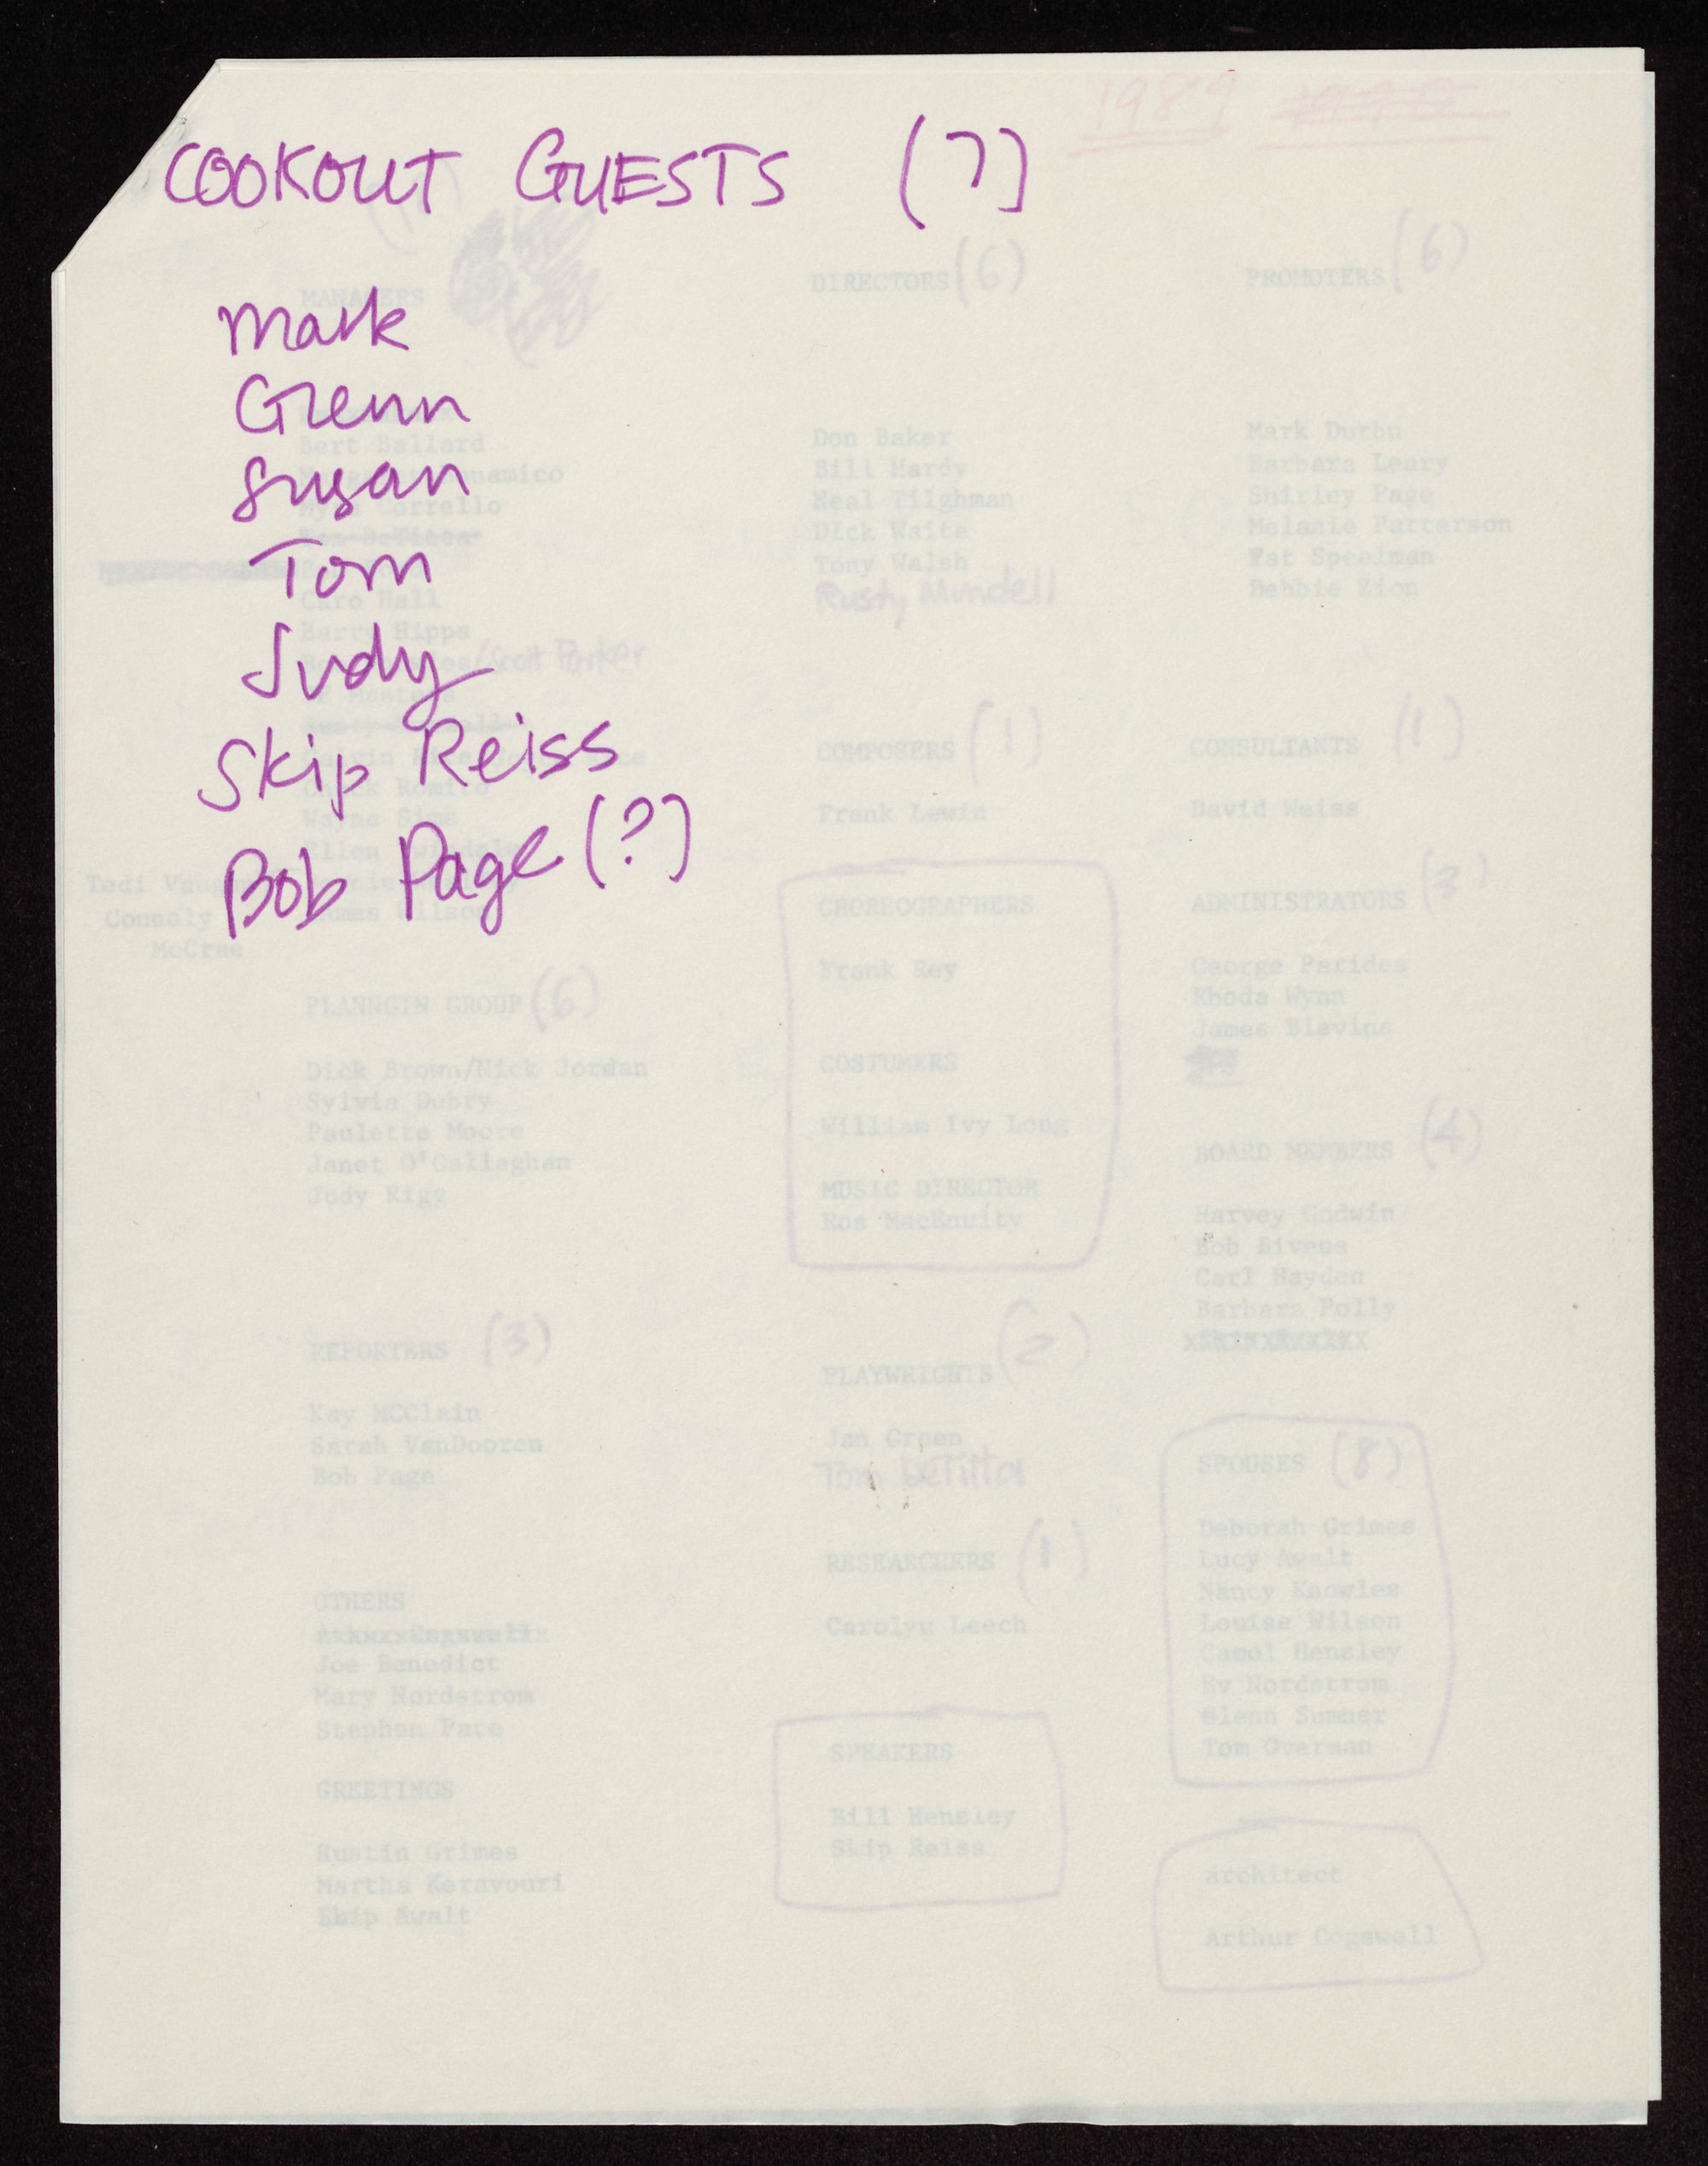 COOKOUT GUESTS (7)
Mark
Glenn
Susan
Tom
Judy
Skip Reiss
Bob Page (?)
1989
MANAGERS
Bert Ballard
Caro Hall
Barry Hipps
Scott Parker
Chuck Romito
Wayne Sims
Connely
McCrae
PLANNGIN GROUP (6)
Dick Brown/Nick Jordan
Sylvia Debry
Paulette Moore
Janet O'Callaghan
Judy Rigg
REPORTERS (3)
Kay MCClain
Sarah VanDooren
Bob Page
OTHERS
Joe Benedict
Mary Nordstrom
Stephen Pate
GREETINGS
Rustin Grimes
Martha Keravouri
Skip Awalt
DIRECTORS (6)
Don Baker
Bill Hardy
Neal Tilghman
Dick Waite
Tony Walsh
Rusty Mundell
COMPOSERS (1)
Frank Lewin
CHOREOGRAPHERS
Frank Rey
COSTUMERS
William Ivy Long
MUSIC DIRECTOR
Ros MacEnulty
PLAYWRIGHTS (2)
Jan Green
Tom DeTitta
RESEARCHERS (1)
Carolyn Leech
SPEAKERS
Bill Hensley
Skip Reiss
PROMOTERS (6)
Mark Durbn
Barbara Leary
Shirley Page
Melanie Patterson
Pat Speelman
Debbie Zion
CONSULTANTS (1)
David Weiss
ADMINISTRATORS (3)
George Parides
Rhoda Wynn
James Blevins
BOARD MEMBERS (4)
Harvey Godwin
Bob Bivens
Carl Hayden
Barbara Polly
SPOUSES (8)
Deborah Grimes
Lucy Awalt
Nancy Knowles
Louise Wilson
Carol Hensley
Ev Nordstrom
Glenn Sumner
Tom Overman
architect
Arthur Cogswell